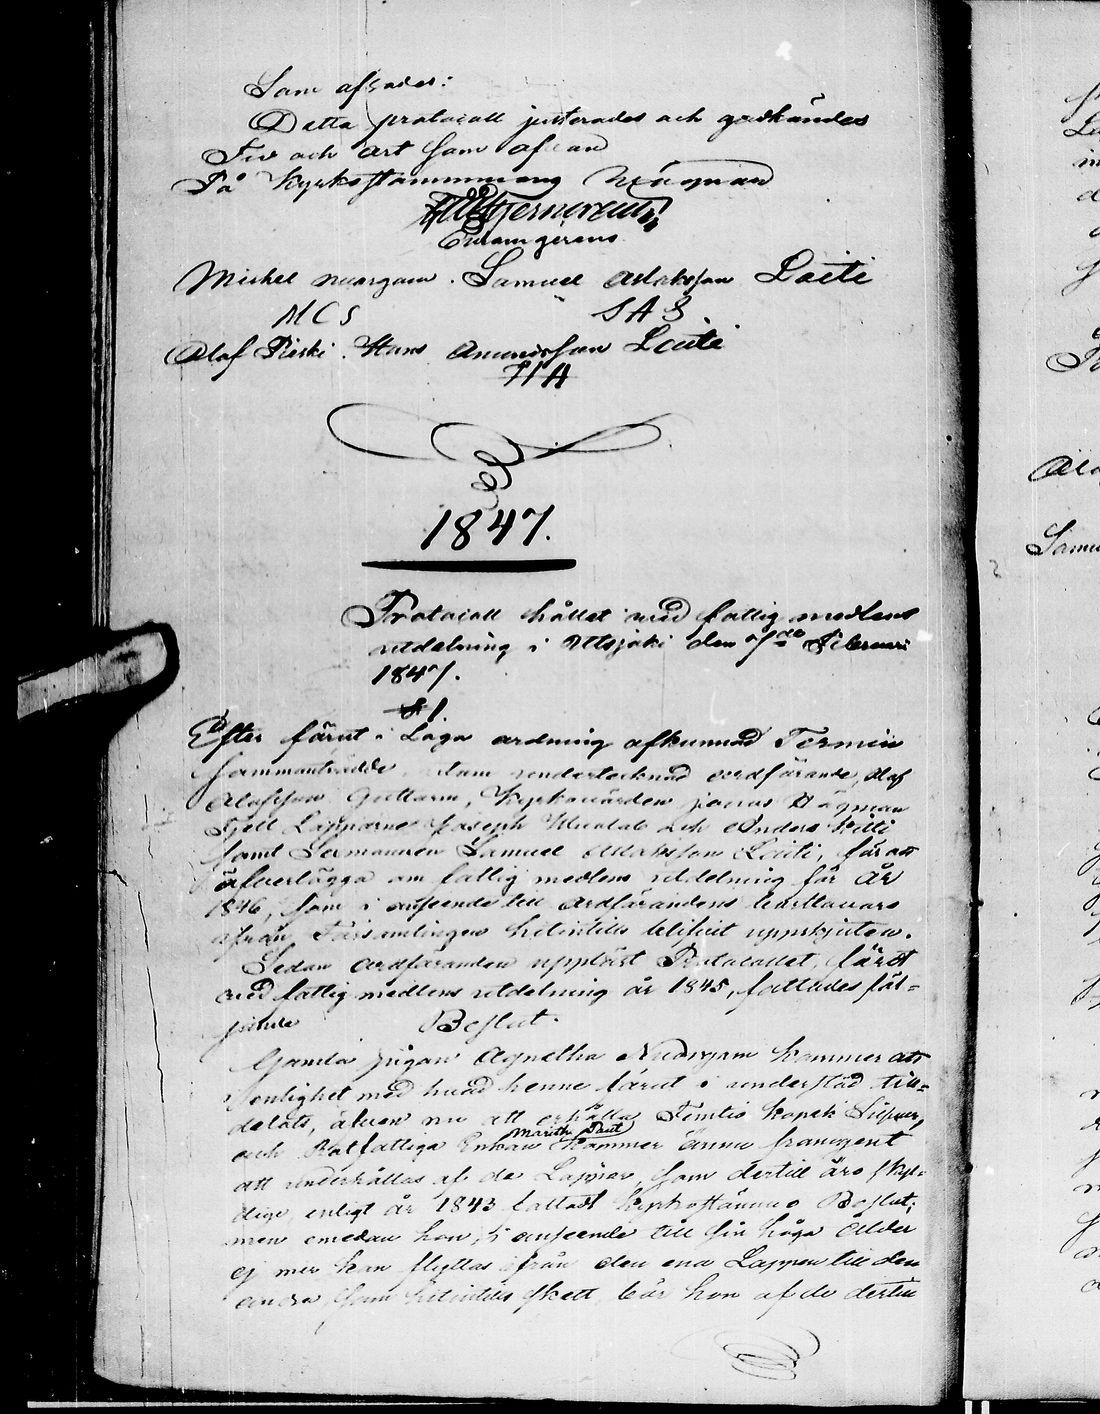 Som afsades:
Detta protocoll justerades och godkändes
Tid och ort som ofvan
På Kyrkostämmans vägnar
Ordningsman
Michel Nuorgam. Samuel Aslaksson Laiti
MCS SAS
Olof Pieski. Hans Amundsson Laiti
HA
1847.
Protocoll hållet vid fattig medlens
utdelning i Uttsjoki den 7de Februari
1847.
§ 1.
Efter förut i Laga ordning afkunnad Termin
sammanträdde utom undertecknad ordförande, Olof
Olofsson Guttorm, Kyrkovärden Jonas Högman
Fjell Lapparne Joseph och Anders Kitti
samt Sexmannen Samuel Aslaksson Laiti, för att
öfverlägga om fattig medlens utdelning för år
1846, som i anseende till Ordförandens
ifrån Församlingen hitintills blifvit uppskjuten.
Sedan Ordföranden uppläst Protocollet, fördt
vid fattig medlens utdelning år 1845, fattades föl-
jande Beslut.
Gamla pigan Agnetha Nuorgam kommer att
i enlighet med hvad henne förut i understöd till-
delats, äfven nu att erhålla Femtio kopek Silfver,
och Utfattiga Enkan Marith Paut kommer ännu framgent
att underhållas af de Lappar, som dertill äro skyl-
dige, enligt år 1843 fattadt Kyrkostämmo Beslut;
men emedan hon, i anseende till sin höga ålder
ej mer kan flyttas ifrån den ena Lappen till den
andra som hitintills skett, bör hon af de dertill